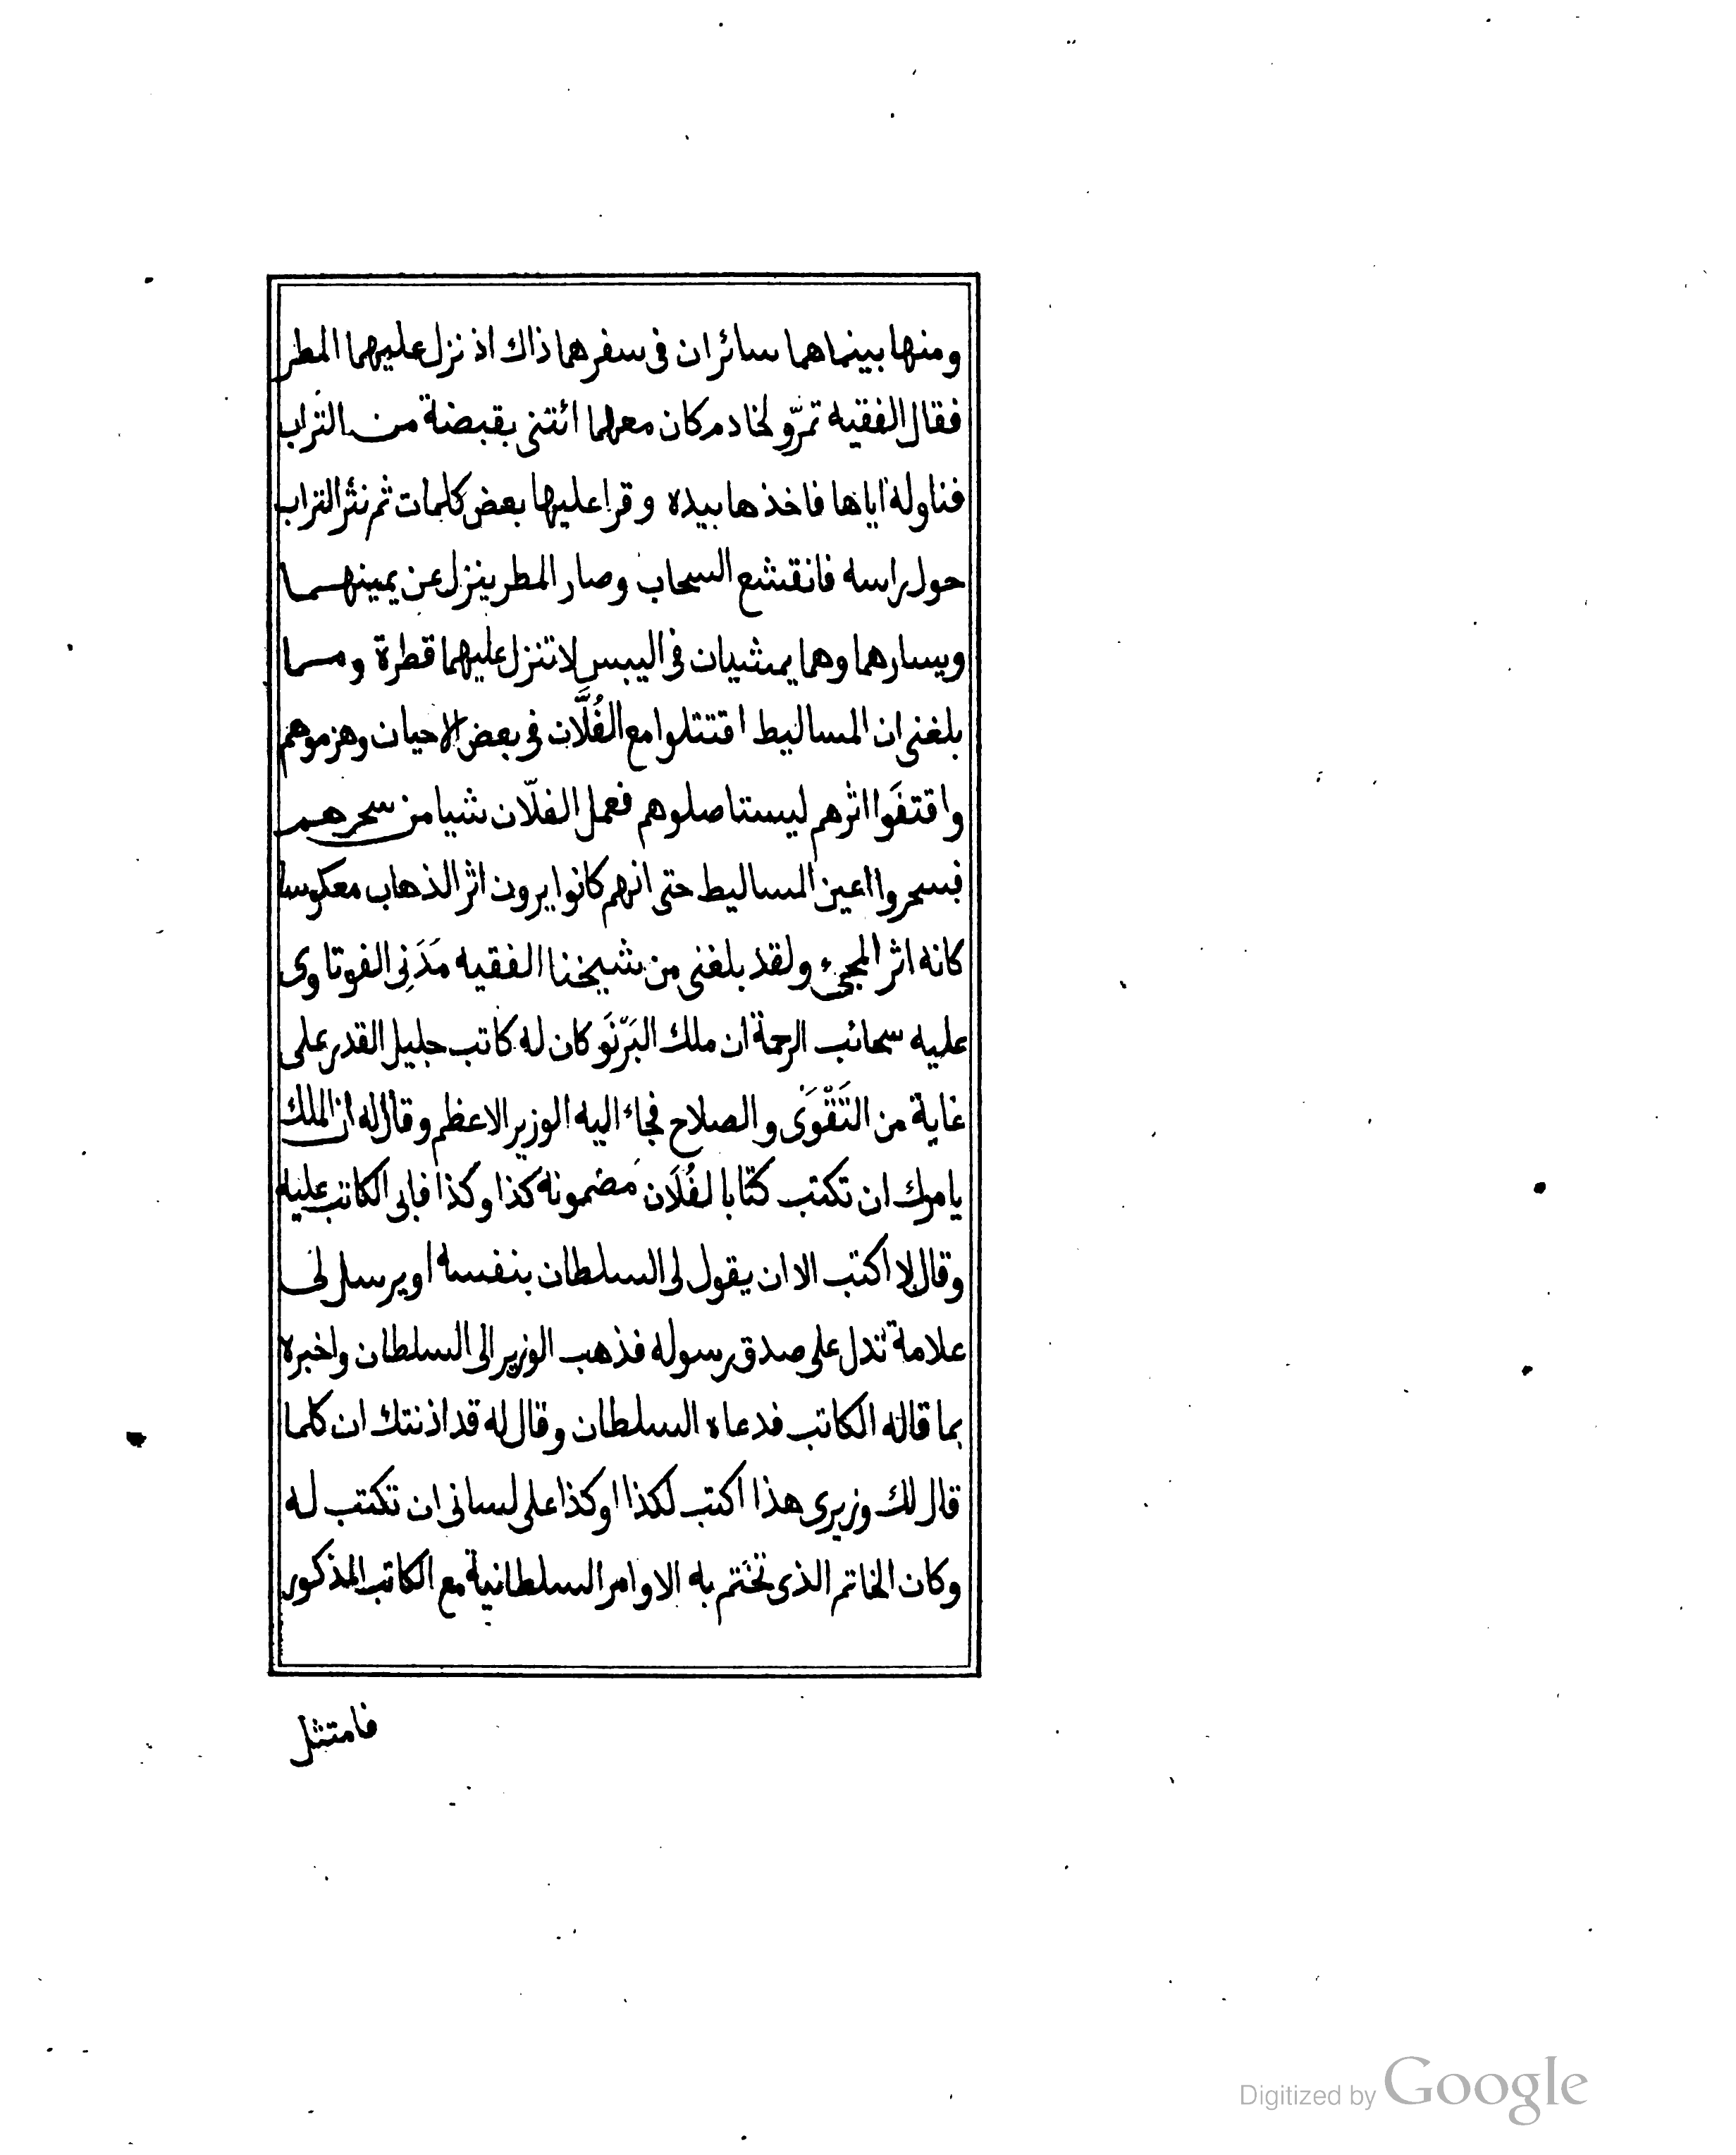 ومنها بينما هما سائران فى سفرهما ذاك اذ نزل عليهما المطر
فقال الفقيه تمرّو لخادم كان معهما ائتنى بقبضة من التراب
فناوله اياها فاخذها بيده وقرا عليها بعض كلمات ثم نثر التراب
حول راسه فانقشع السحاب وصار المطر ينزل عن يمينهما
ويسارهما وهما يمشيان فى اليبس لا تنزل عليهما قطرة ومما
بلغنى ان المساليط اقتتلوا مع الفُلَّان فى بعض الاحيان وهزموهم
واقتفَوا اثرهم ليستاصلوهم فعمل الفلّان شيا من سحرهم
فسحروا اعين المساليط حتى انهم كانوا يرون اثر الذهاب معكوسا
كانه اثر المجىء ولقد بلغنى من شيخنا الفقيه مَدَنِى الفوتاوى
عليه سحائب الرحمة ان ملك البَرْنَو كان له كاتب جليل القدر على
غاية من التَّقْوَى والصلاح فجاء اليه الوزير الاعظم وقال له ان الملك
يامرك ان تكتب كتابا لفُلَان مضمونه كذا وكذا فابى الكاتب عليه
وقال لا اكتب الا ان يقول لى السلطان بنفسه او يرسل لى
علامة تدل على صدق رسوله فذهب الوزير الى السلطان واخبره
بما قاله الكاتب فدعاه السلطان وقال له قد اذنتك ان كلما
قال لك وزيرى هذا اكتب لكذا او كذا على لسانى ان تكتب له
وكان الخاتم الذى تختم به الاوامر السلطانية مع الكاتب المذكور
فامتثل
Digitized by Google